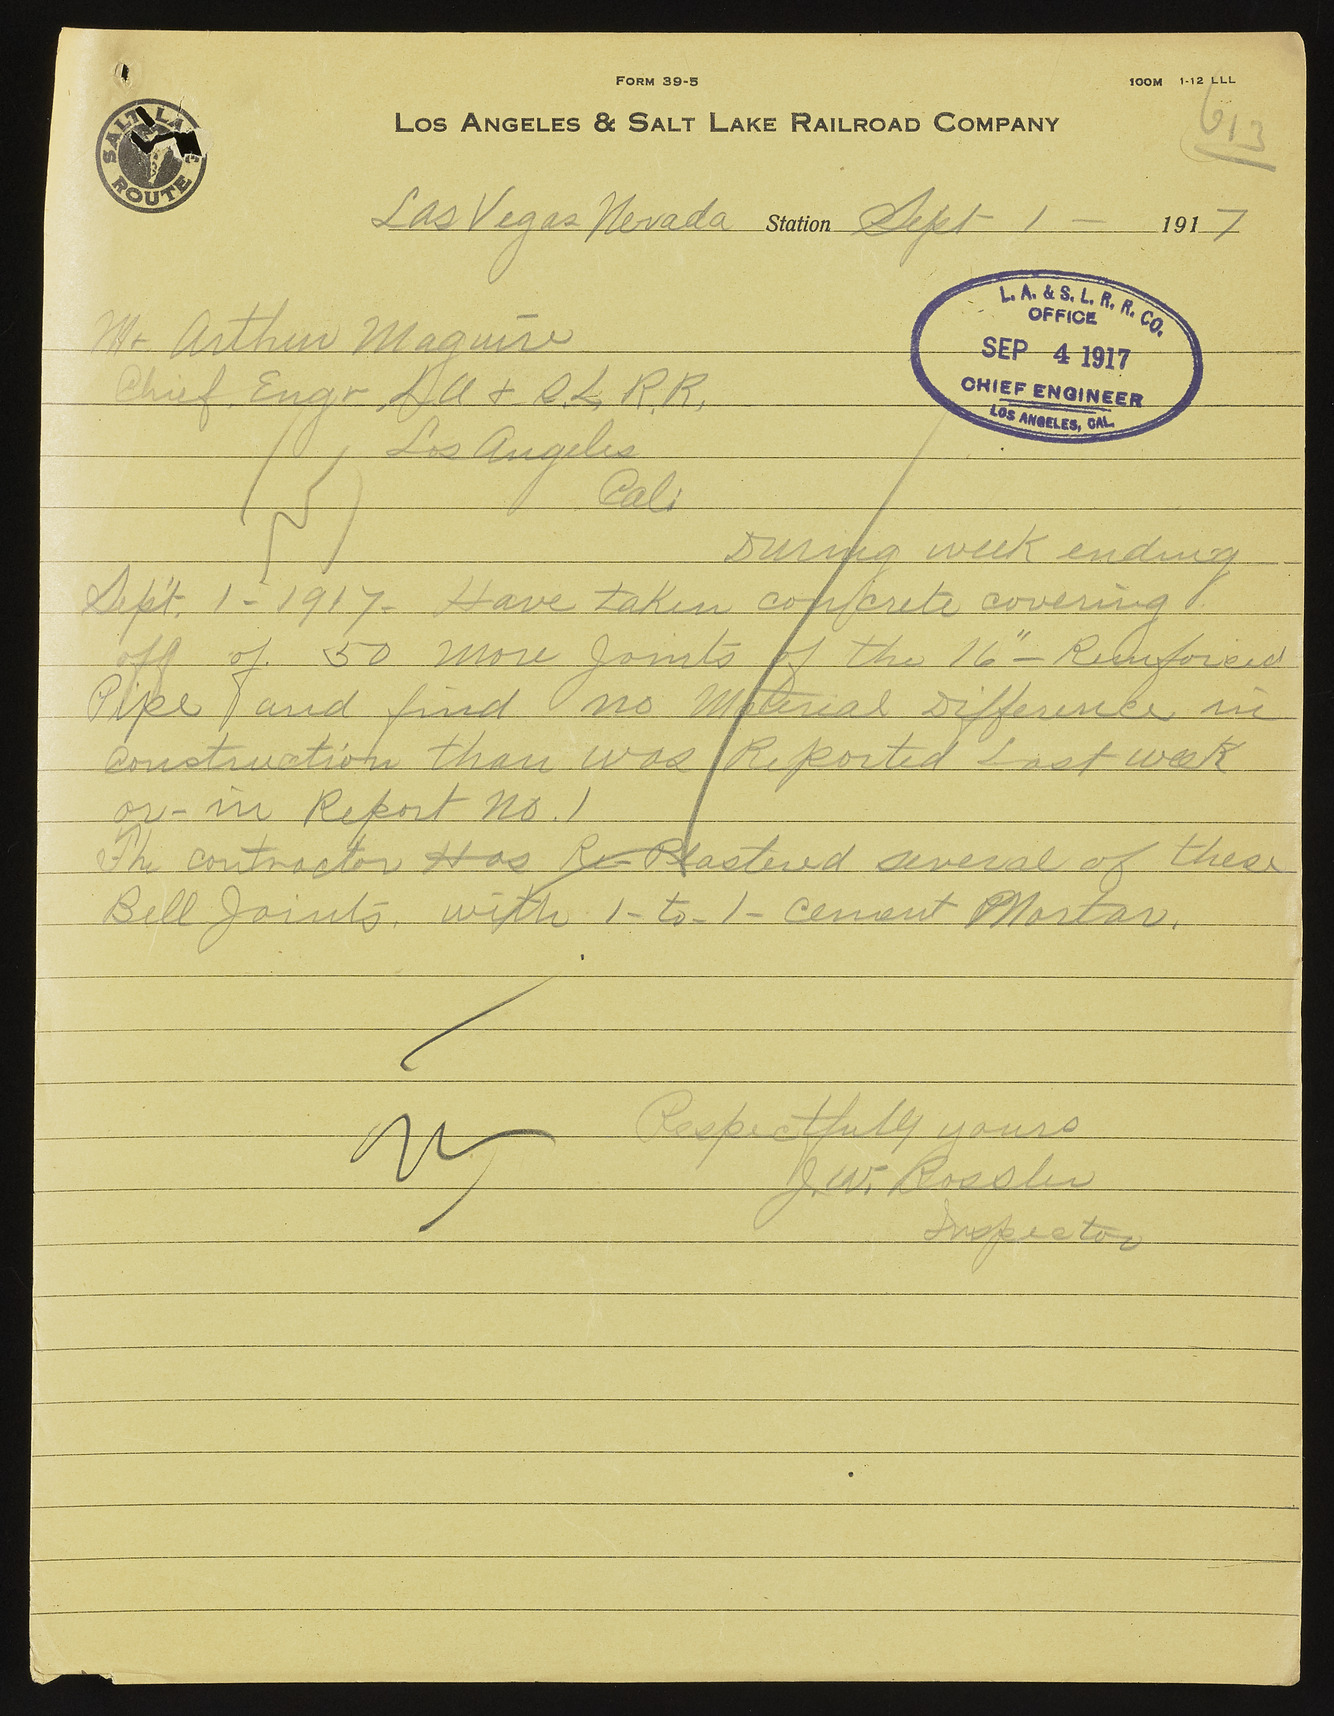 FORM 39-5
100M 1-12 LLL
LOS ANGELES & SALT LAKE RAILROAD COMPANY
613
SALT LA
ROUTE
Las Vegas Nevada Station Sept 1 - 1917
L. A. & S. L. R. R. CO.
OFFICE
SEP 4 1917
CHIEF ENGINEER
LOS ANGELES, CAL.
Mr Arthur Maguire
Chief. Engr. L A & S. L. R. R.
Los Angeles
Cali
During week ending
Sept. 1 - 1917 - Have taken concrete covering
off of 50 more Joints of the 16" - Reinforced
Pipe and find no Material Difference in
construction than was Reported Last week
or - in Report No. 1
The contractor Has Re-Plastered several of these
Bell Joints. with 1 - to - 1 - cement Mortar.
Respectfully yours
J. W. Rossler
Inspector